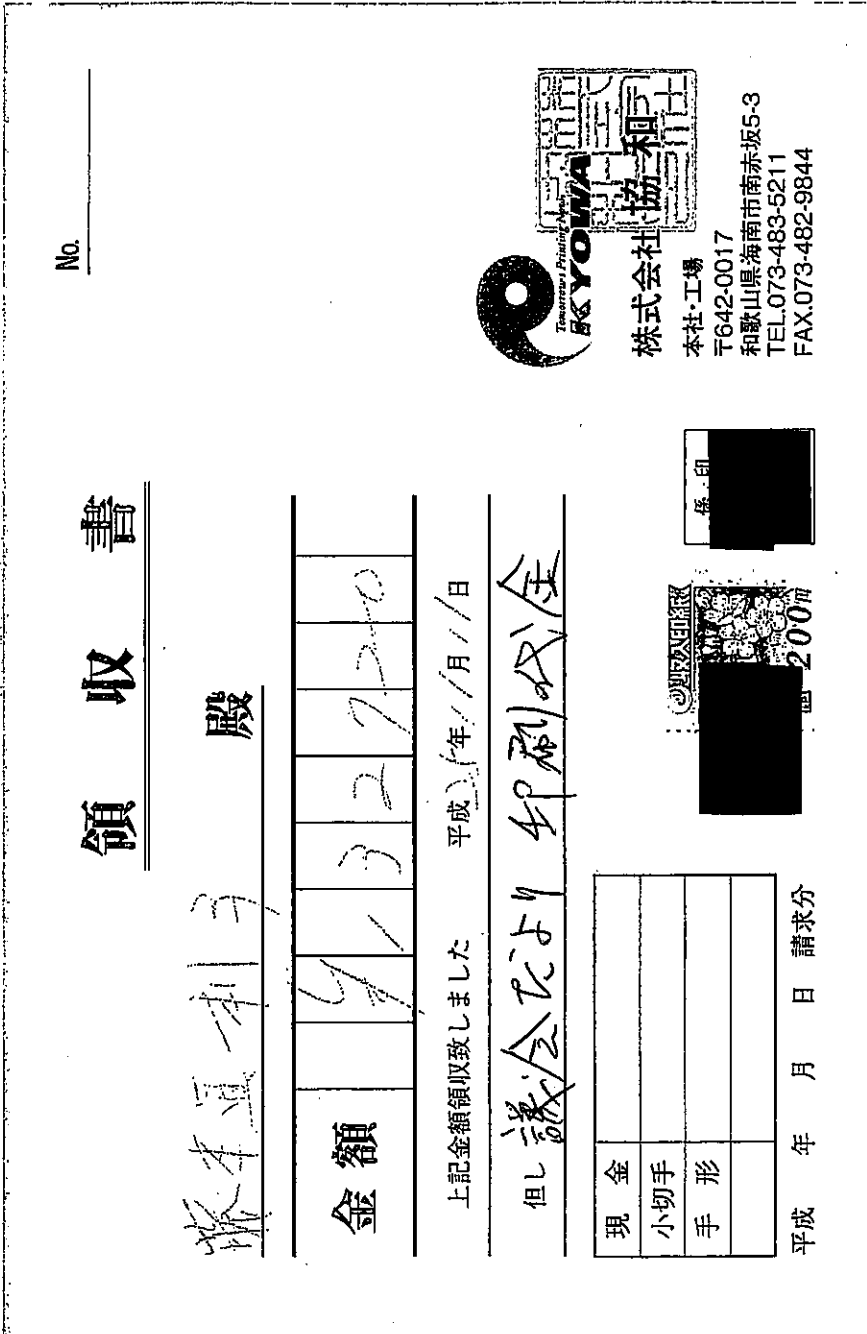 No.
領収書
藤本眞利子 殿
金額 ¥132720
上記金額領収致しました 平成 年11月11日
但し 議会だより 印刷代金
現金
小切手
手形
平成 年 月 日 請求分
収入印紙
200円
係印
Tomorrow's Printing Navi
KYOWA
株式会社 協和
本社・工場
〒642-0017
和歌山県海南市南赤坂5-3
TEL.073-483-5211
FAX.073-482-9844